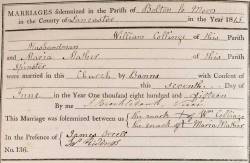 MARRIAGES solemnized in the Parish of Bolton le Moors
in the County of Lancaster in the Year 1815
William Collinge of this Parish
Husbandman
and Maria Mather of this Parish
Spinster
were married in this Church by Banns with Consent of
this seventh Day of
June in the Year One thousand eight hundred and fifteen
By me Vicar
This Marriage was solemnized between us Wm Collinge
Maria Mather
In the Presence of James Orrell
No. 136.